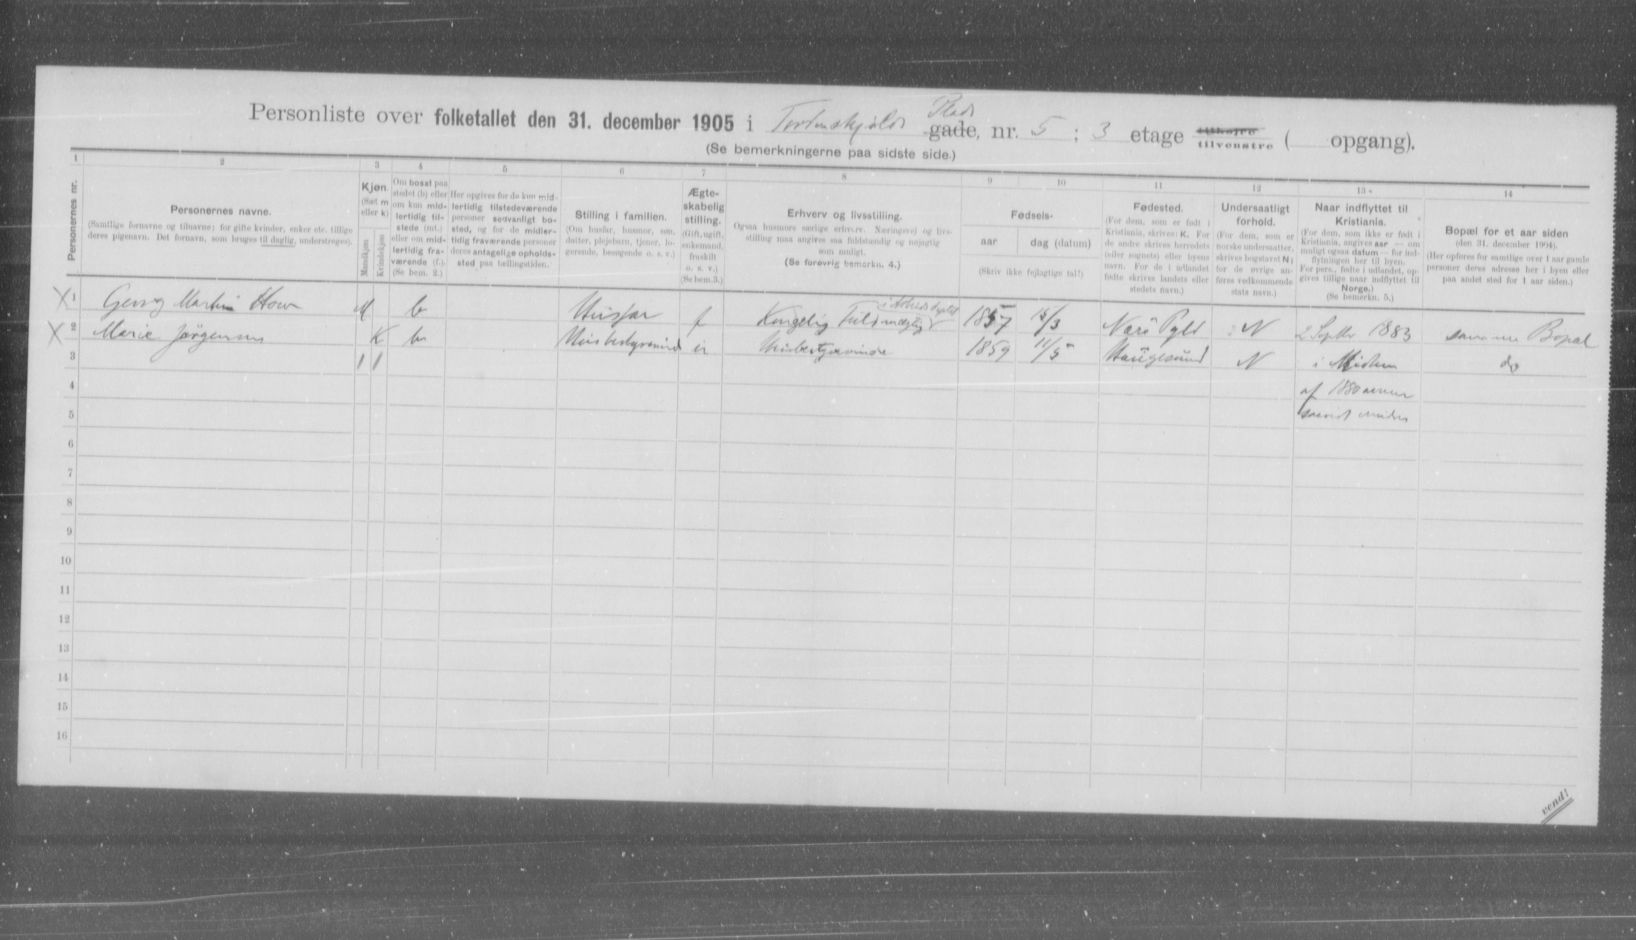 Personliste over folketallet den 31. december 1905 i Tordenskjolds Plads gade, nr. 5 ; 3 etage tilhøjre tilvenstre ( opgang).
(Se bemerkningerne paa sidste side.)
1 2 3 4 5 6 7 8 9 10 11 12 13 14
Personernes nr.
Personernes navne.
(Samtlige fornavne og tilnavne; for gifte kvinder, enker etc. tillige
deres pigenavn. Det fornavn, som bruges til daglig, understreges).
Kjøn.
(Sæt m
eller k)
Mandkjøn
Kvindekjøn
Om bosat paa
stedet (b) eller
om kun mid-
lertidig til-
stede (mt.)
eller om mid-
lertidig fra-
værende (f.).
(Se bem. 2.)
Her opgives for de kun mid-
lertidig tilstedeværende
personer sedvanligt bo-
sted, og for de midler-
tidig fraværende personer
deres antagelige opholds-
sted paa tællingstiden.
Stilling i familien.
(Om husfar, husmor, søn,
datter, plejebarn, tjener, lo-
gerende, besøgende o. s. v.)
Ægte-
skabelig
stilling.
(Gift, ugift,
enkemand,
fraskilt
o. s. v.)
(Se bem. 3.)
Erhverv og livsstilling.
Ogsaa husmors særlige erhverv. Næringsvej og livs-
stilling maa angives saa fuldstændig og nøjagtig
som muligt.
(Se forøvrig bemerkn. 4.)
Fødsels-
aar
dag (datum)
(Skriv ikke fejlagtige tal!)
Fødested.
(For dem, som er født i
Kristiania, skrives: K. For
de andre skrives herredets
(eller sognets) eller byens
navn. For de i udlandet
fødte skrives landets eller
stedets navn.)
Undersaatligt
forhold.
(For dem, som er
norske undersaatter,
skrives bogstavet N;
for de øvrige an-
føres vedkommende
stats navn.)
Naar indflyttet til
Kristiania.
(For dem, som ikke er født i
Kristiania, angives aar — om
muligt ogsaa datum — for ind-
flytningen her til byen.
For pers., fødte i udlandet, op-
gives tillige naar indflyttet til
Norge.)
(Se bemerkn. 5.)
Bopæl for et aar siden
(den 31. december 1904).
(Her opføres for samtlige over 1 aar gamle
personer deres adresse her i byen eller
paa andet sted for 1 aar siden.)
1 Georg Martin M b Husfar f Kongelig Fuldmægtig 1857 15/3 Nærø N 2 Septbr 1883 samme Bopæl
2 Marie Jörgensen K b Husbestyrerinde Husbestyrerinde 1859 11/5 Haugesund N i Midten do
3
4 af 1880 aarene
5
6
7
8
9
10
11
12
13
14
15
16
vend!